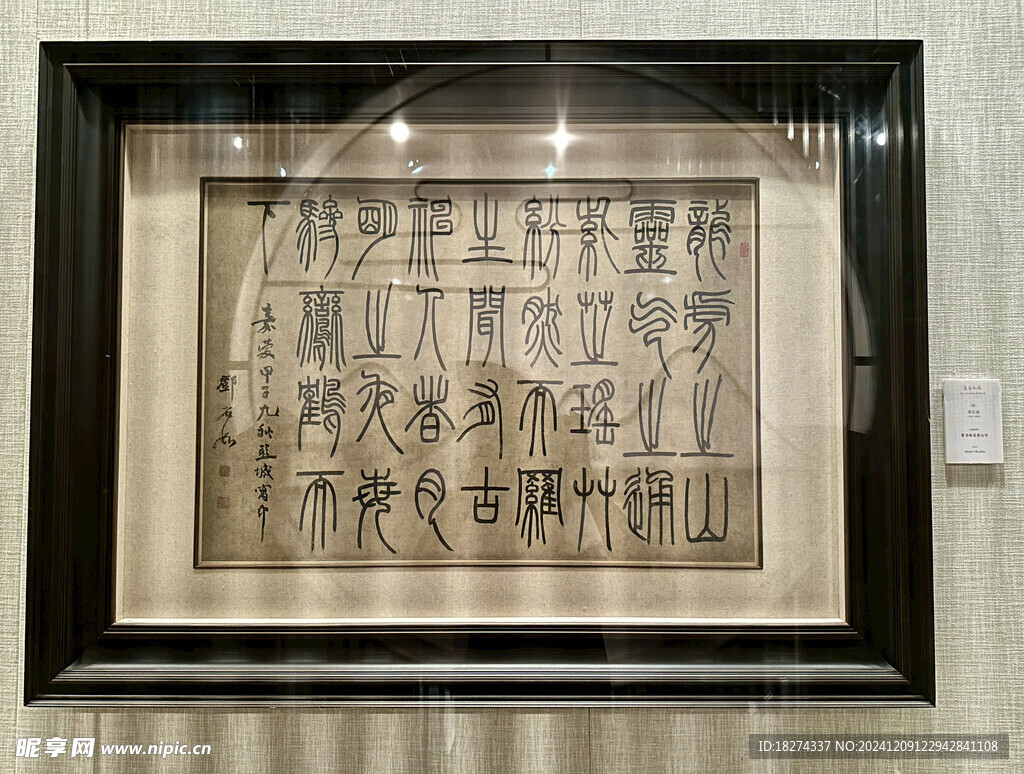 龍虎之山
靈气之通
紫芝瑤艸
紛然而羅
生間有古
神人者月
朙之夜每
驂鸞鶴而
下
嘉慶甲子九秋城寓中
鄧石如
昵享网 www.nipic.cn
ID:18274337 NO:20241209122942841108